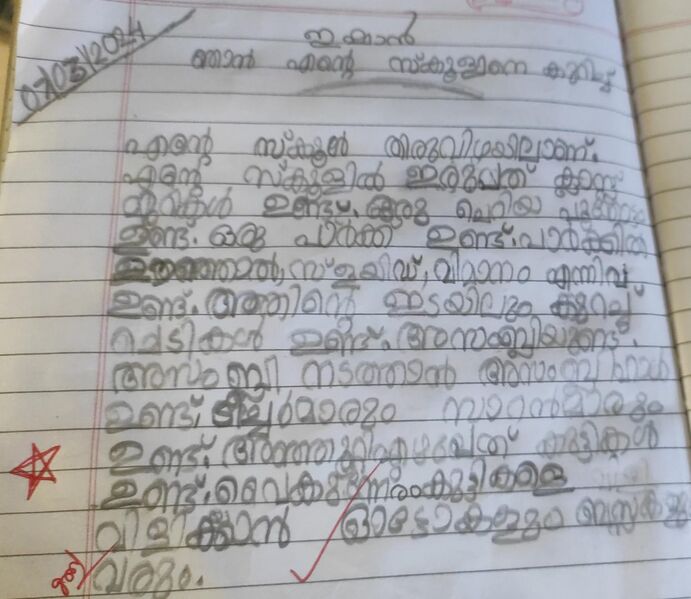 07/03/2024
ഇഷാൻ
ഞാൻ എന്റെ സ്കൂളിനെ കുറിച്ച്
എന്റെ സ്കൂൾ തിരുവിഴയിലാണ്.
എന്റെ സ്കൂളിൽ ഇരുപത് ക്ലാസ്സ്
മുറികൾ ഉണ്ട്. ഒരു ചെറിയ
ഉണ്ട്. ഒരു പാർക്ക് ഉണ്ട്. പാർക്കിൽ
സ്ളയിഡ്, വിമാനം എന്നിവ
ഉണ്ട്. അതിന്റെ ഇടയിലും കുറച്ച്
ചെടികൾ ഉണ്ട്. അസംബ്ലിയുണ്ട്.
അസംബ്ലി നടത്താൻ അസംബ്ലിഹാൾ
ഉണ്ട്. ടീച്ചർമാരും സാറൻമാരും
ഉണ്ട്. കുട്ടികൾ
ഉണ്ട്. വൈകുന്നരം കുട്ടികളെ
വിളിക്കാൻ ഓട്ടോകളും ബസ്സുകളും
വരും.
good